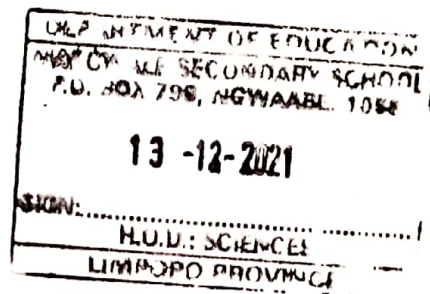 DEPARTMENT OF EDUCATION
SECONDARY SCHOOL
P.O. BOX 796, 
13 -12- 2021
SIGN:
H.O.D.: SCIENCES
LIMPOPO PROVINCE